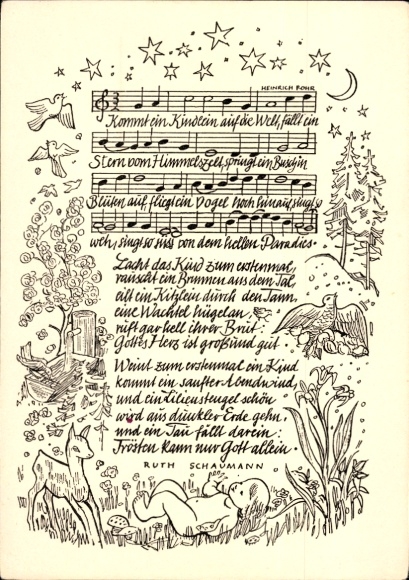 HEINRICH ROHR
Kommt ein Kindlein auf die Welt, fällt ein
Stern vom Himmelszelt, springt ein Busch in
Blüten auf, fliegt ein Vogel hoch hinauf, singt so
weh, singt so süß von dem hellen Paradies.
Lacht das Kind zum erstenmal,
rauscht ein Brunnen aus dem Tal,
eilt ein Kitzlein durch den Tann,
eine Wachtel hügelan,
ruft gar hell ihrer Brut:
Gottes Herz ist groß und gut.
Weint zum erstenmal ein Kind
kommt ein sanfter Abendwind,
und ein Lilienstengel schön
wird aus dunkler Erde gehn,
und ein Tau fällt darein:
Trösten kann nur Gott allein.
RUTH SCHAUMANN